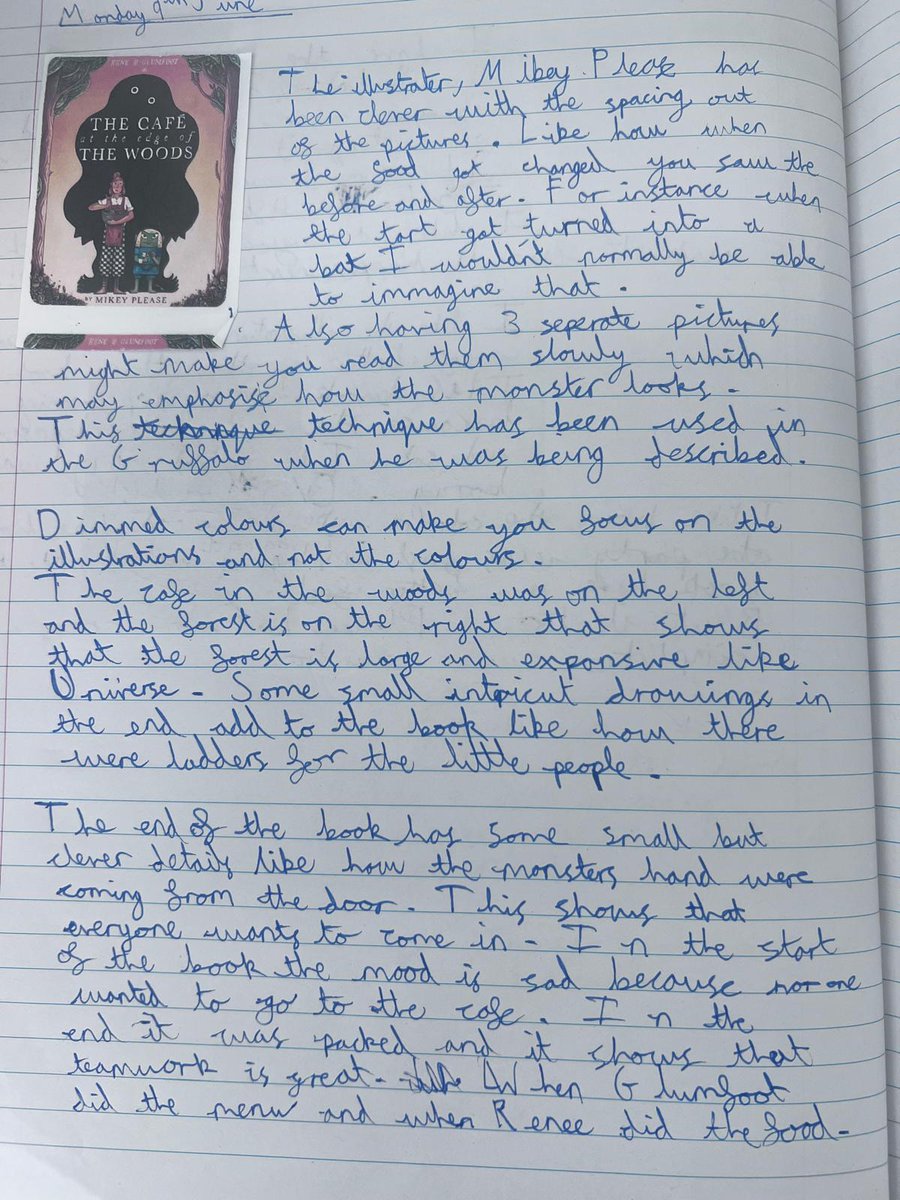 Monday 9th June
RENE & GLUMFOOT
THE CAFÉ
at the edge of
THE WOODS
BY MIKEY PLEASE
1
RENE & GLUMFOOT
The illustrater, Mikey Please has
been clever with the spacing out
of the pictures. Like how when
the food got changed you saw the
before and after. For instance when
the tart got turned into a
bat I wouldn't normally be able
to immagine that.
. Also having 3 seperate pictures
might make you read them slowly which
may emphasise how the monster looks.
This technique technique has been used in
the Gruffalo when he was being described.
Dimmed colours can make you focus on the
illustrations and not the colours.
The cafe in the woods was on the left
and the forest is on the right that shows
that the forest is large and expansive like
Universe. Some small intricut drawings in
the end add to the book like how there
were ladders for the little people.
The end of the book has some small but
clever details like how the monsters hand were
coming from the door. This shows that
everyone wants to come in. In the start
of the book the mood is sad because nor one
wanted to go to the cafe. In the
end it was packed and it shows that
teamwork is great. When Glumfoot
did the menu and when Renee did the food.